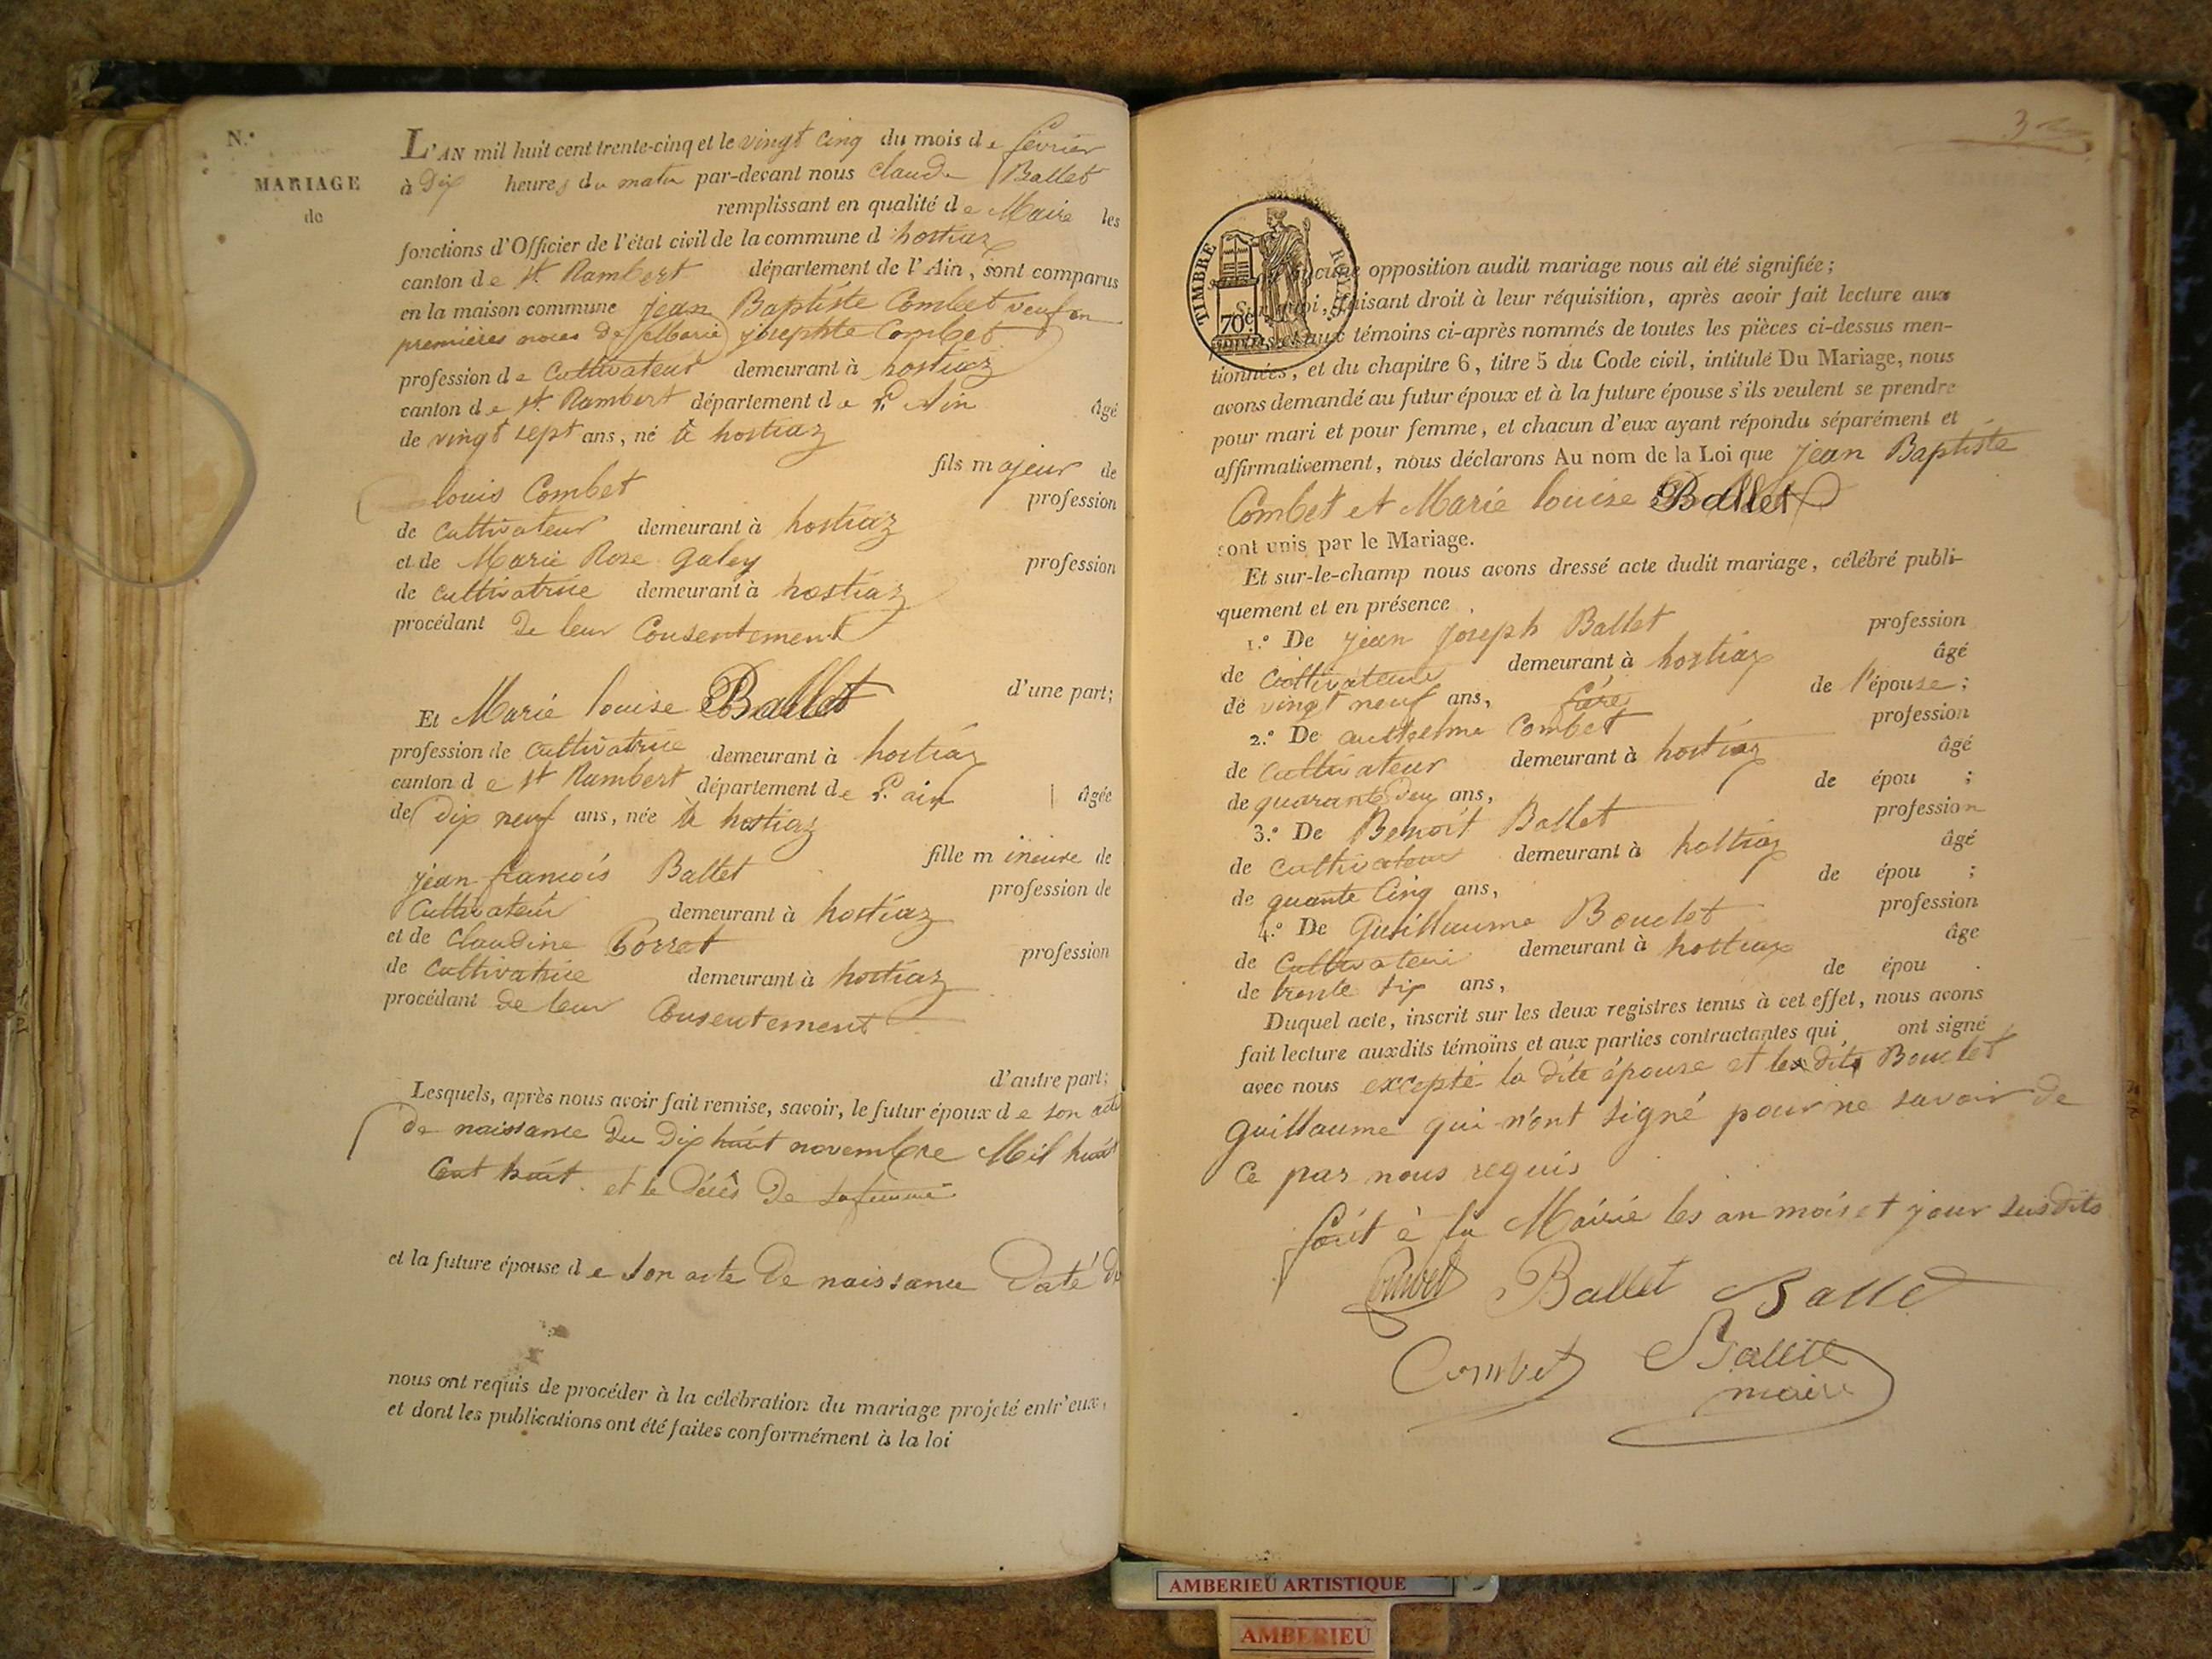 N.°
MARIAGE
de
L'AN mil huit cent trente-cinq et le vingt cinq du mois de février
à Dix heures du matin par-devant nous Claude Ballet
remplissant en qualité de Maire les
fonctions d'Officier de l'état civil de la commune d hostiaz
canton de St Rambert département de l'Ain, sont comparus
en la maison commune Jean Baptiste Combet veuf en
premières noces de Marie josephte Combet
profession de Cultivateur demeurant à hostiaz
canton de St. Rambert département de l'Ain âgé
de vingt sept ans, né à hostiaz
fils majeur de
louis Combet profession
de cultivateur demeurant à hostiaz
et de Marie Rose Galey profession
de cultivatrice demeurant à hostiaz
procédant de leur Consentement
d'une part;
Et Marie louise Ballet
profession de Cultivatrice demeurant à hostiaz
canton de St Rambert département de l'ain âgée
de Dix neuf ans, née à hostiaz
fille mineure de
jean francois Ballet profession de
Cultivateur demeurant à hostiaz
et de Claudine Porret profession
de cultivatrice demeurant à hostiaz
procédant de leur Consentement
d'autre part;
Lesquels, après nous avoir fait remise, savoir, le futur époux de son acte
de naissance du Dix huit novembre Mil huit
Cent huit et le décès de sa femme
et la future épouse de son acte de naissance Daté du
nous ont requis de procéder à la célébration du mariage projeté entr'eux,
et dont les publications ont été faites conformément à la loi
3
TIMBRE ROYAL
70c
aucune opposition audit mariage nous ait été signifiée;
Sur quoi, faisant droit à leur réquisition, après avoir fait lecture aux
parties et aux témoins ci-après nommés de toutes les pièces ci-dessus men-
tionnées, et du chapitre 6, titre 5 du Code civil, intitulé Du Mariage, nous
avons demandé au futur époux et à la future épouse s'ils veulent se prendre
pour mari et pour femme, et chacun d'eux ayant répondu séparément et
affirmativement, nous déclarons Au nom de la Loi que Jean Baptiste
Combet et Marie louise Ballet
sont unis par le Mariage.
Et sur-le-champ nous avons dressé acte dudit mariage, célébré publi-
quement et en présence
1.° De jean joseph Ballet profession
de Cultivateur demeurant à hostiaz âgé
de vingt neuf ans, frère de l'épouse;
2.° De anthelme Combet profession
de Cultivateur demeurant à hostiaz âgé
de quarante deux ans, de épou ;
3.° De Benoit Ballet profession
de Cultivateur demeurant à hostiaz âgé
de quante Cinq ans, de épou ;
4.° De Guillaume Bouclet profession
de Cultivateur demeurant à hostiaz âge
de trente six ans, de épou .
Duquel acte, inscrit sur les deux registres tenus à cet effet, nous avons
fait lecture auxdits témoins et aux parties contractantes qui ont signé
avec nous excepté la dite épouse et le dit Bouclet
Guillaume qui n'ont signé pour ne savoir de
Ce par nous requis
fait à la Mairie les an mois et jour susdits
Combet Ballet Ballet
Combet Ballet
maire
AMBERIEU ARTISTIQUE
AMBERIEU